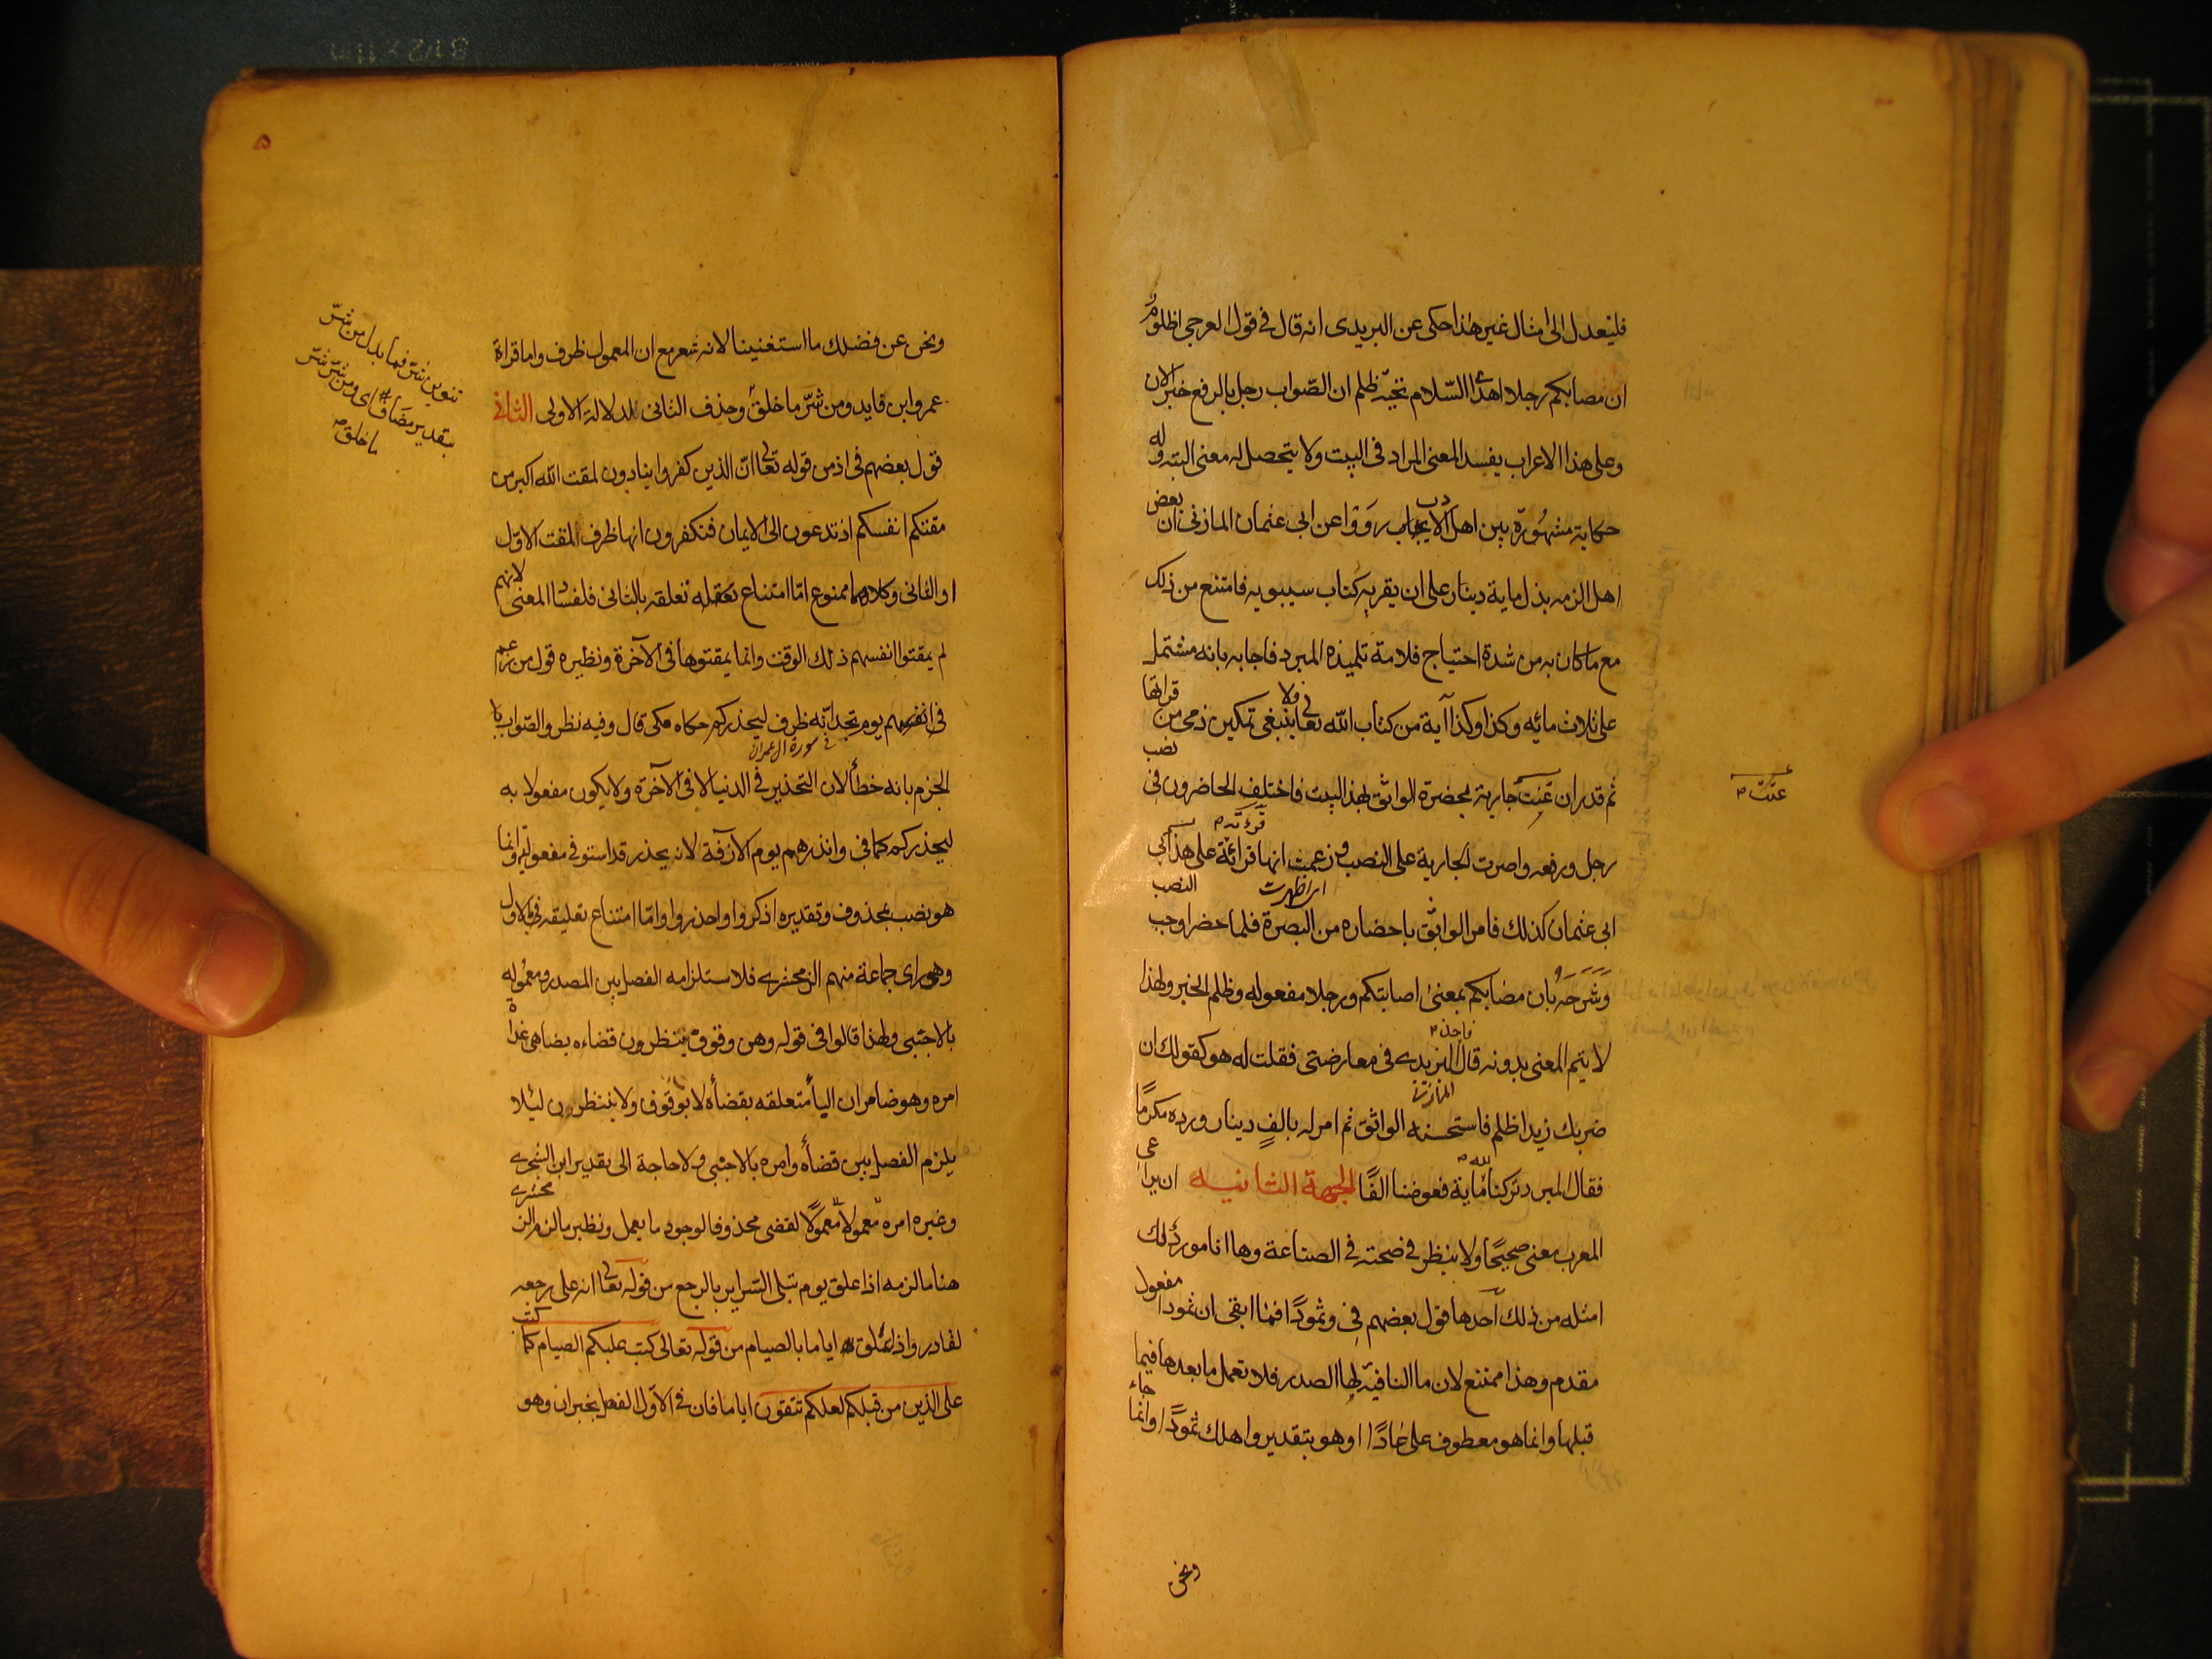 فليعدل الى مثال غير هذا حكى عن اليزيدى انه قال فى قول العرجى اظلوم
ان مصابكم رجلا اهدى السّلام تحيّه ظلم ان الصّواب رجل بالرفع خبر الان
وعلى هذا الاعراب يفسد المعنى المراد فى البيت ولا يتحصل له معنى البته وله
حكاية مشهورة بين اهل الادب رووا عن ابى عثمان المازنى ان بعض
اهل الذمه بذل ماية دينار على ان يقريه كتاب سيبويه فامتنع من ذلك
مع ما كان به من شدة احتياج فلامة تلميذه المبرد فاجابه بانه مشتمل
على ثلاث مائه وكذا وكذا آية من كتاب الله تعالى ولا ينبغى تمكين ذمى من قراتها
ثم قدر ان غنت جارية بحضرة الواثق بهذا البيت فاختلف الحاضرون فى نصب
رجل ورفعه واصرت الجارية على النصب وزعمت انها قرائة على هذا ابى
ابى عثمان كذلك فامر الواثق باحضاره من البصرة فلما حضر اوجب النصب
وشرحه بان مصابكم بمعنى اصابتكم ورجلا مفعوله وظلم الخبر ولهذا
لا يتم المعنى بدونه قال فاخذ اليزيدى فى معارضتى فقلت له هو كقولك ان
ضربك زيدا ظلم فاستحسنه الواثق ثم امر له بالف دينار ورده مكرمًا
فقال للمبرد تركنا لله ماية فعوضنا الفًا الجهة الثانيه ان يراعى
المعرب معنى صحيحًا ولا ينظر فى صحته فى الصناعة وها انا مورد لك
امثله من ذلك احدها قول بعضهم فى وثمودًا فما ابقى ان ثمودا مفعول
مقدم وهذا ممتنع لان ما النافيّة لها الصدر فلا تعمل ما بعدها فيما
قبلها وانما هو معطوف على عادًا او هو بتقدير واهلك ثمودًا وانما جاء
ونحن
غنّت
ونحن عن فضلك ما استغنينا لانه شعر مع ان المعمول ظرف واما قراة
عمرو ابن قايد ومن شرّ ما خلق وحذف الثانى لدلالة الاولى الثانى
قول بعضهم فى اذ من قوله تعالى انّ الذين كفروا ينادون لمقت الله اكبر من
مقتكم انفسكم اذ تدعون الى الايمان فتكفرون انها ظرف للمقت الاوّل
او الثانى وكلاهما ممنوع امّا امتناع تعلقه بالثانى فلفساد المعنى لانهم
لم يمقتوا انفسهم ذلك الوقت وانما يمقتوها فى الآخرة ونظيره قول من زعم
فى يوم تجد انّه ظرف ليحذركم حكاه مكى قال وفيه نظر والصّواب
فى سورة ال عمران
الجزم بانه خطأ لان التحذير فى الدنيا لا فى الآخرة ولا يكون مفعولا به
ليحذركم كما فى وانذرهم يوم الآزفة لانه يحذر قد استوفى مفعوليه وانما
هو نصب بمحذوف وتقديره اذكروا او احذروا وامّا امتناع تعليقه بالاول
وهو راى جماعة منهم الزمخشرى فلاستلزامه الفصل بين المصدر ومعموله
بالاجنبى ولهذا قالوا فى قوله وهن وقوف ينتظرون قضاءه بضاحى غداة
امره وهو ضامر ان اليا متعلقه بقضأه لا بوقوف ولا ينتظرون ليلا
يلزم الفصل بين قضأه وامره بالاجنبى ولا حاجة الى تقدير ابن الشجرى
وغيره امره معمولا لقضى محذوفا لوجود ما يعمل ونظير ما لزم الزمخشرى
هنا ما لزمه اذا علق يوم تبلى السّراير بالرجع من قوله تعالى انه على رجعه
لقادر واذا علق اياما بالصيام من قوله تعالى كتب عليكم الصيام كما كتب
على الذين من قبلكم لعلكم تتقون اياما فان فى الاوّل الفصل بخبر ان وهو
تنوين شرّ فما بدل من شرّ
بتقدير مضاف اى ومن شرّ شرّ
ما خلق